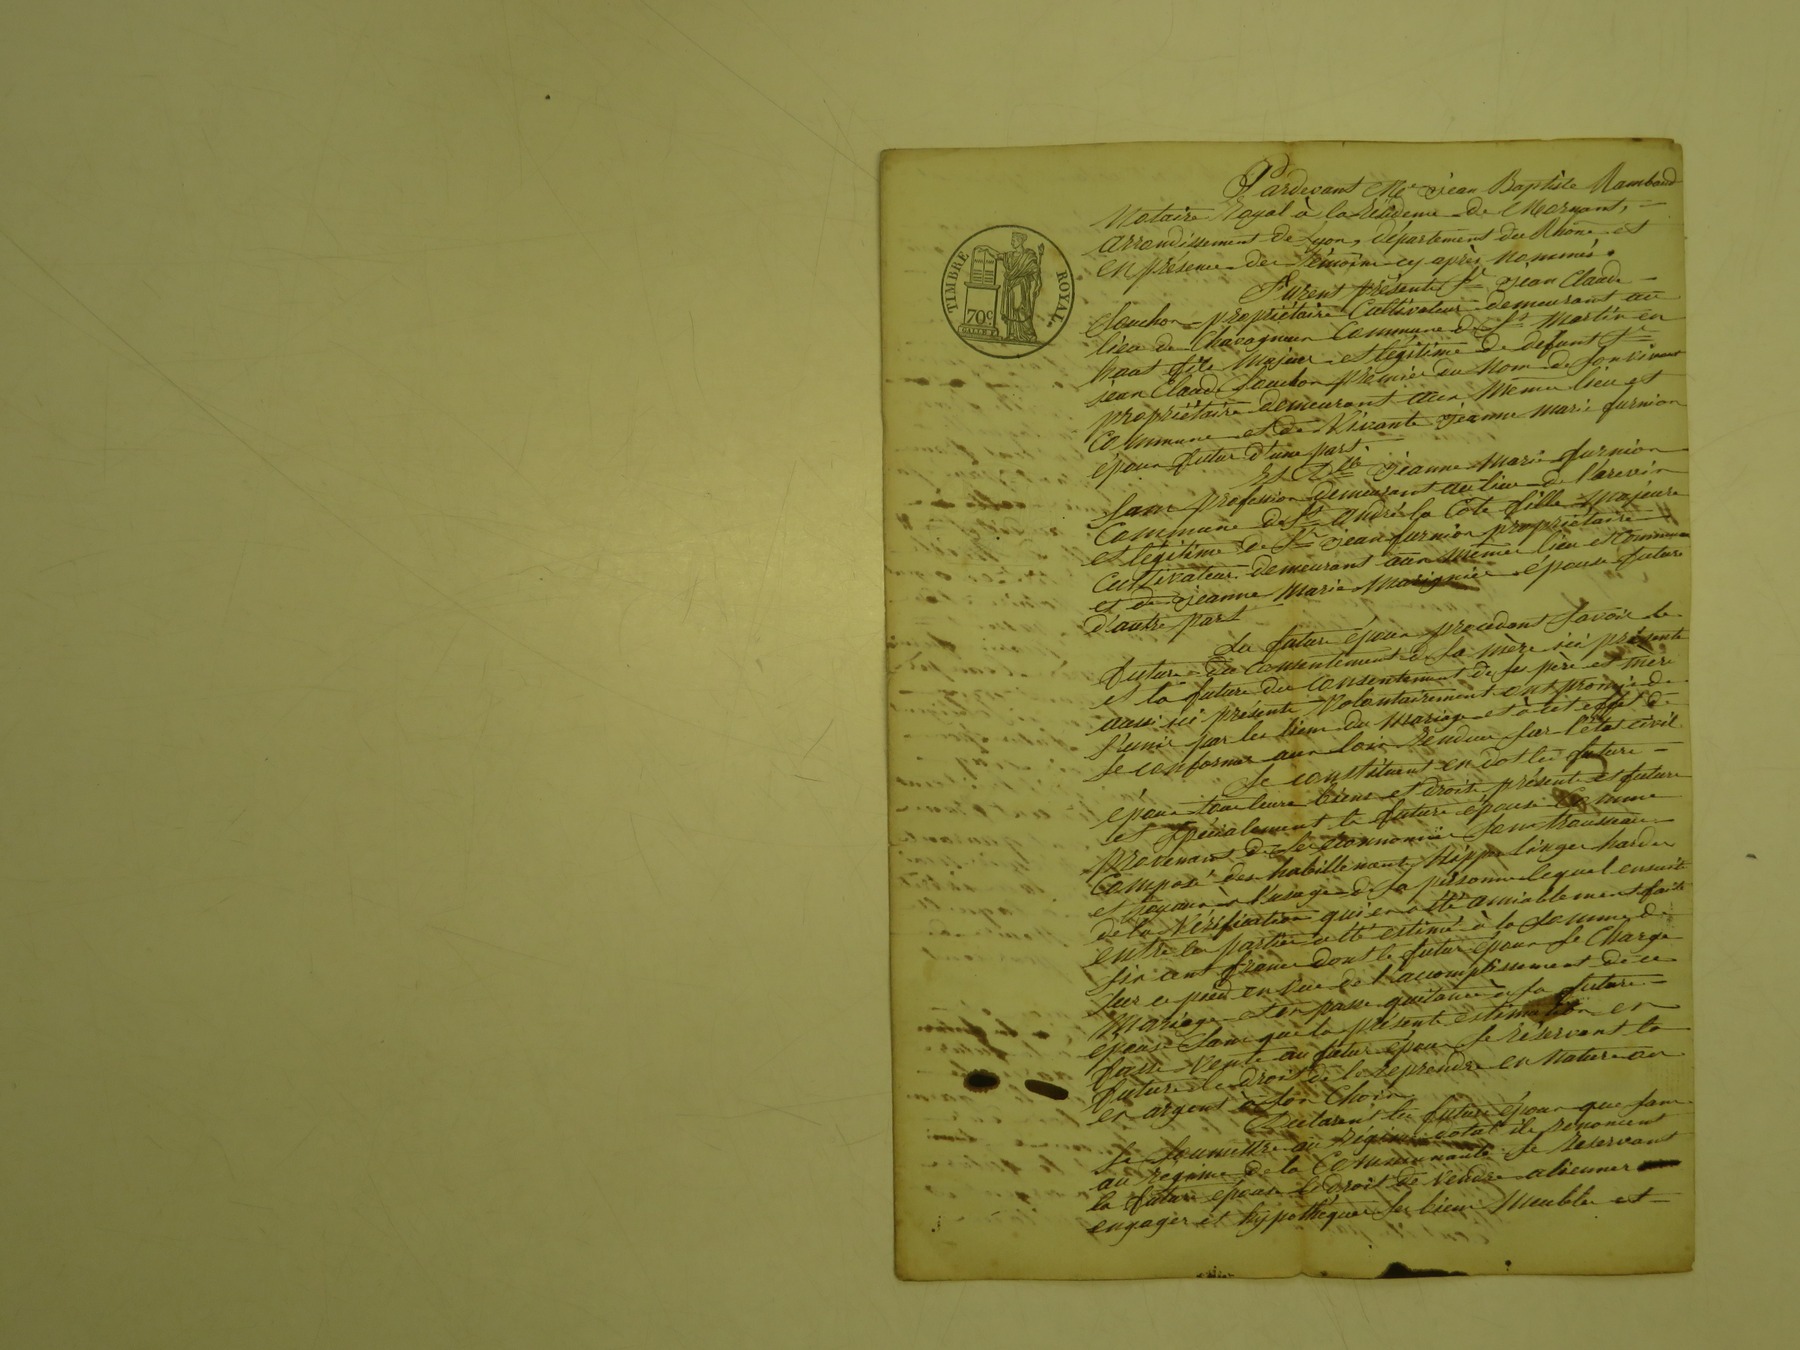 TIMBRE ROYAL
70c
Pardevant Me jean Baptiste Rambaud
Notaire Royal à la Résidence de Mornant,
arrondissement de Lyon, département du Rhône et
en présence des témoins cy après nommés.
Furent présents Sr jean Claude
Souchon propriétaire Cultivateur demeurant au
lieu de Commune de St Martin en
haut fils Majeur et légitime de defunt Sr
jean Claude Souchon premier du Nom de Son vivant
propriétaire demeurant aux Mêmes lieu et
Commune et de Vivante jeanne marie furnion
époux futur d'une part.
Et Dlle jeanne Marie furnion
Sans profession demeurant au lieu de
Commune de St andré la Côte fille Majeure
et légitime de Sr jean furnion propriétaire
Cultivateur demeurant aux mêmes lieu et Commune
et de jeanne Marie épouse future
d'autre part
Les futurs époux procédant Savoir le
futur du Consentement de Sa mère ici présente
et la future du Consentement de Ses père et mère
aussi ici présents Volontairement ont promis de
S'unir par les liens du Mariage et à cet effet de
Se conformer aux lois Rendues Sur l'état civil
Se constituent en dot les futurs
époux tous leurs biens et droits présents et futurs
et Spécialement la future épouse Comme
provenant de Ses Economies Son trousseau
Composé des habillements Nippes linges hardes
et joyaux à l'usage de Sa personne lequel ensuite
de la Vérification qui en a été amiablement faite
entre les parties a été estimé à la Somme de
Six cent francs dont le futur époux Se Charge
Sur ce pied en vue de l'accomplissement de ce
Mariage et en passe quitance à Sa future
épouse Sans que la présente estimation en
fasse Vente au futur époux Se réservant la
future le droit de le reprendre en Nature ou
en argent à Son Choix
Déclarent les futurs époux que Sans
Se Soumettre au Régime dotal ils renoncent
au Régime de la Communauté Se Reservant
la future épouse le droit de Vendre aliener
engager et hypothéquer Ses biens Meubles et